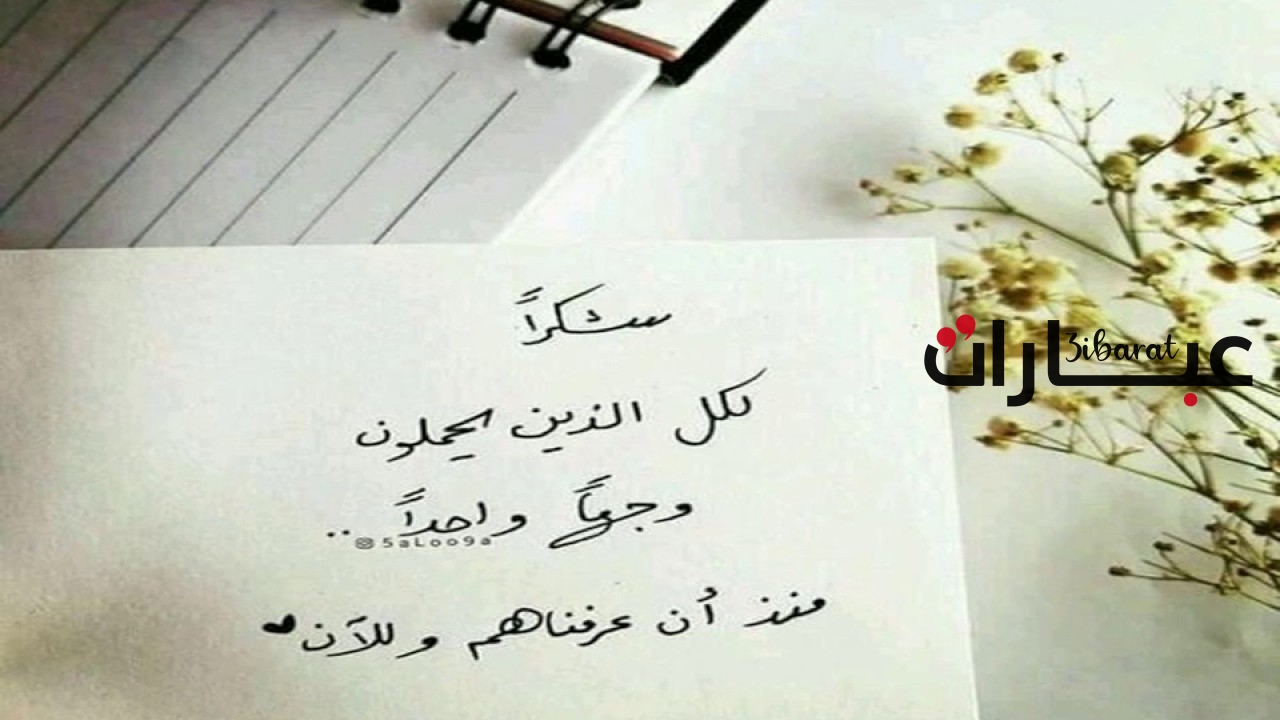 شكراً
لكل الذين يحملون
وجهاً واحداً ..
@5aLoo9a
منذ أن عرفناهم وللآن
عبارات
3ibarat